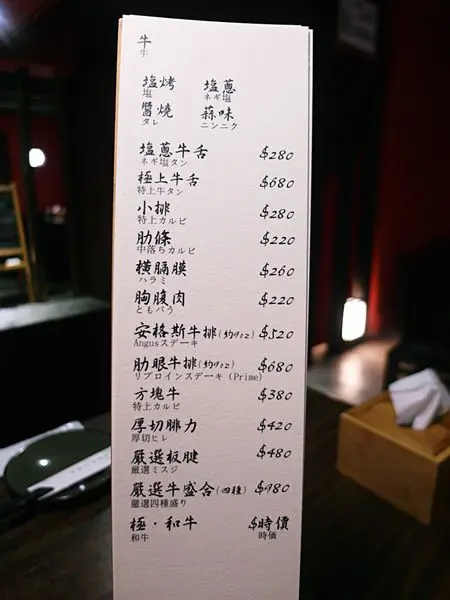 牛
牛
塩烤 塩蔥
塩 ネギ塩
醬燒 蒜味
タレ ニンニク
塩蔥牛舌 $280
ネギ塩タン
極上牛舌 $680
特上牛タン
小排 $280
特上カルビ
肋條 $220
中落ちカルビ
橫膈膜 $260
ハラミ
胸腹肉 $220
ともバラ
安格斯牛排(約9oz) $520
Angusステーキ
肋眼牛排(約9oz) $680
リブロインステーキ(Prime)
方塊牛 $380
特上カルビ
厚切腓力 $420
厚切ヒレ
嚴選板腱 $480
厳選ミスジ
嚴選牛盛合(四種) $980
厳選四種盛り
極・和牛 $時價
和牛 時価